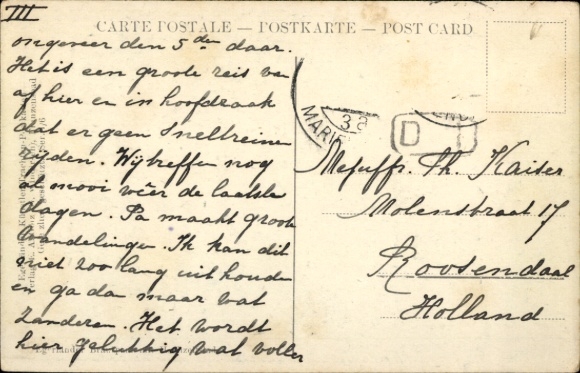 III
CARTE POSTALE — POSTKARTE — POST CARD
ongeveer den 5den daar.
Het is een groote reis van
af hier en in hoofdzaak
dat er geen sneltreinen
rijden. Wij treffen nog
al mooi wéer de laatste
dagen. Pa maakt groote
wandelingen. Ik kan dit
niet zoo lang uithouden
en ga dan maar wat
zanderen. Het wordt
hier gelukkig wat voller
MARIE
D
Mejuffr. Th. Kaiser
Molenstraat 17
Roosendaal
Holland